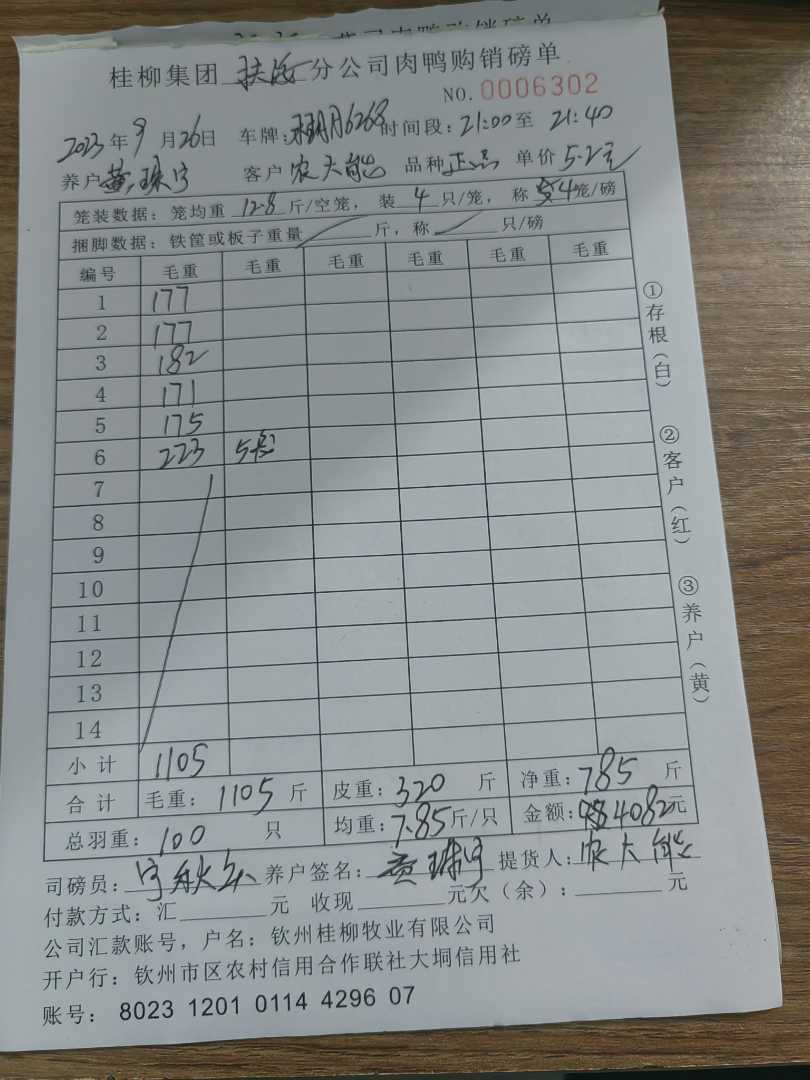 桂柳集团 扶 分公司肉鸭购销磅单
NO. 0006302
2023年9月26日 车牌: 时间段: 21:00至 21:40
养户 黄珠宇 客户 农大能 品种 正品 单价 5.2元
笼装数据: 笼均重 12.8 斤/空笼, 装 4 只/笼, 称 4 笼/磅
捆脚数据: 铁筐或板子重量 斤, 称 只/磅
编号 毛重 毛重 毛重 毛重 毛重 毛重
1 177
2 177
3 182
4 171
5 175
6 223 5
7
8
9
10
11
12
13
14
小计 1105
合计 毛重: 1105 斤 皮重: 320 斤 净重: 785 斤
总羽重: 100 只 均重: 7.85 斤/只 金额: 4082元
司磅员: 养户签名: 黄珠宇 提货人: 农大能
付款方式: 汇 元 收现 元欠(余): 元
公司汇款账号, 户名: 钦州桂柳牧业有限公司
开户行: 钦州市区农村信用合作联社大垌信用社
账号: 8023 1201 0114 4296 07
①存根(白)
②客户(红)
③养户(黄)